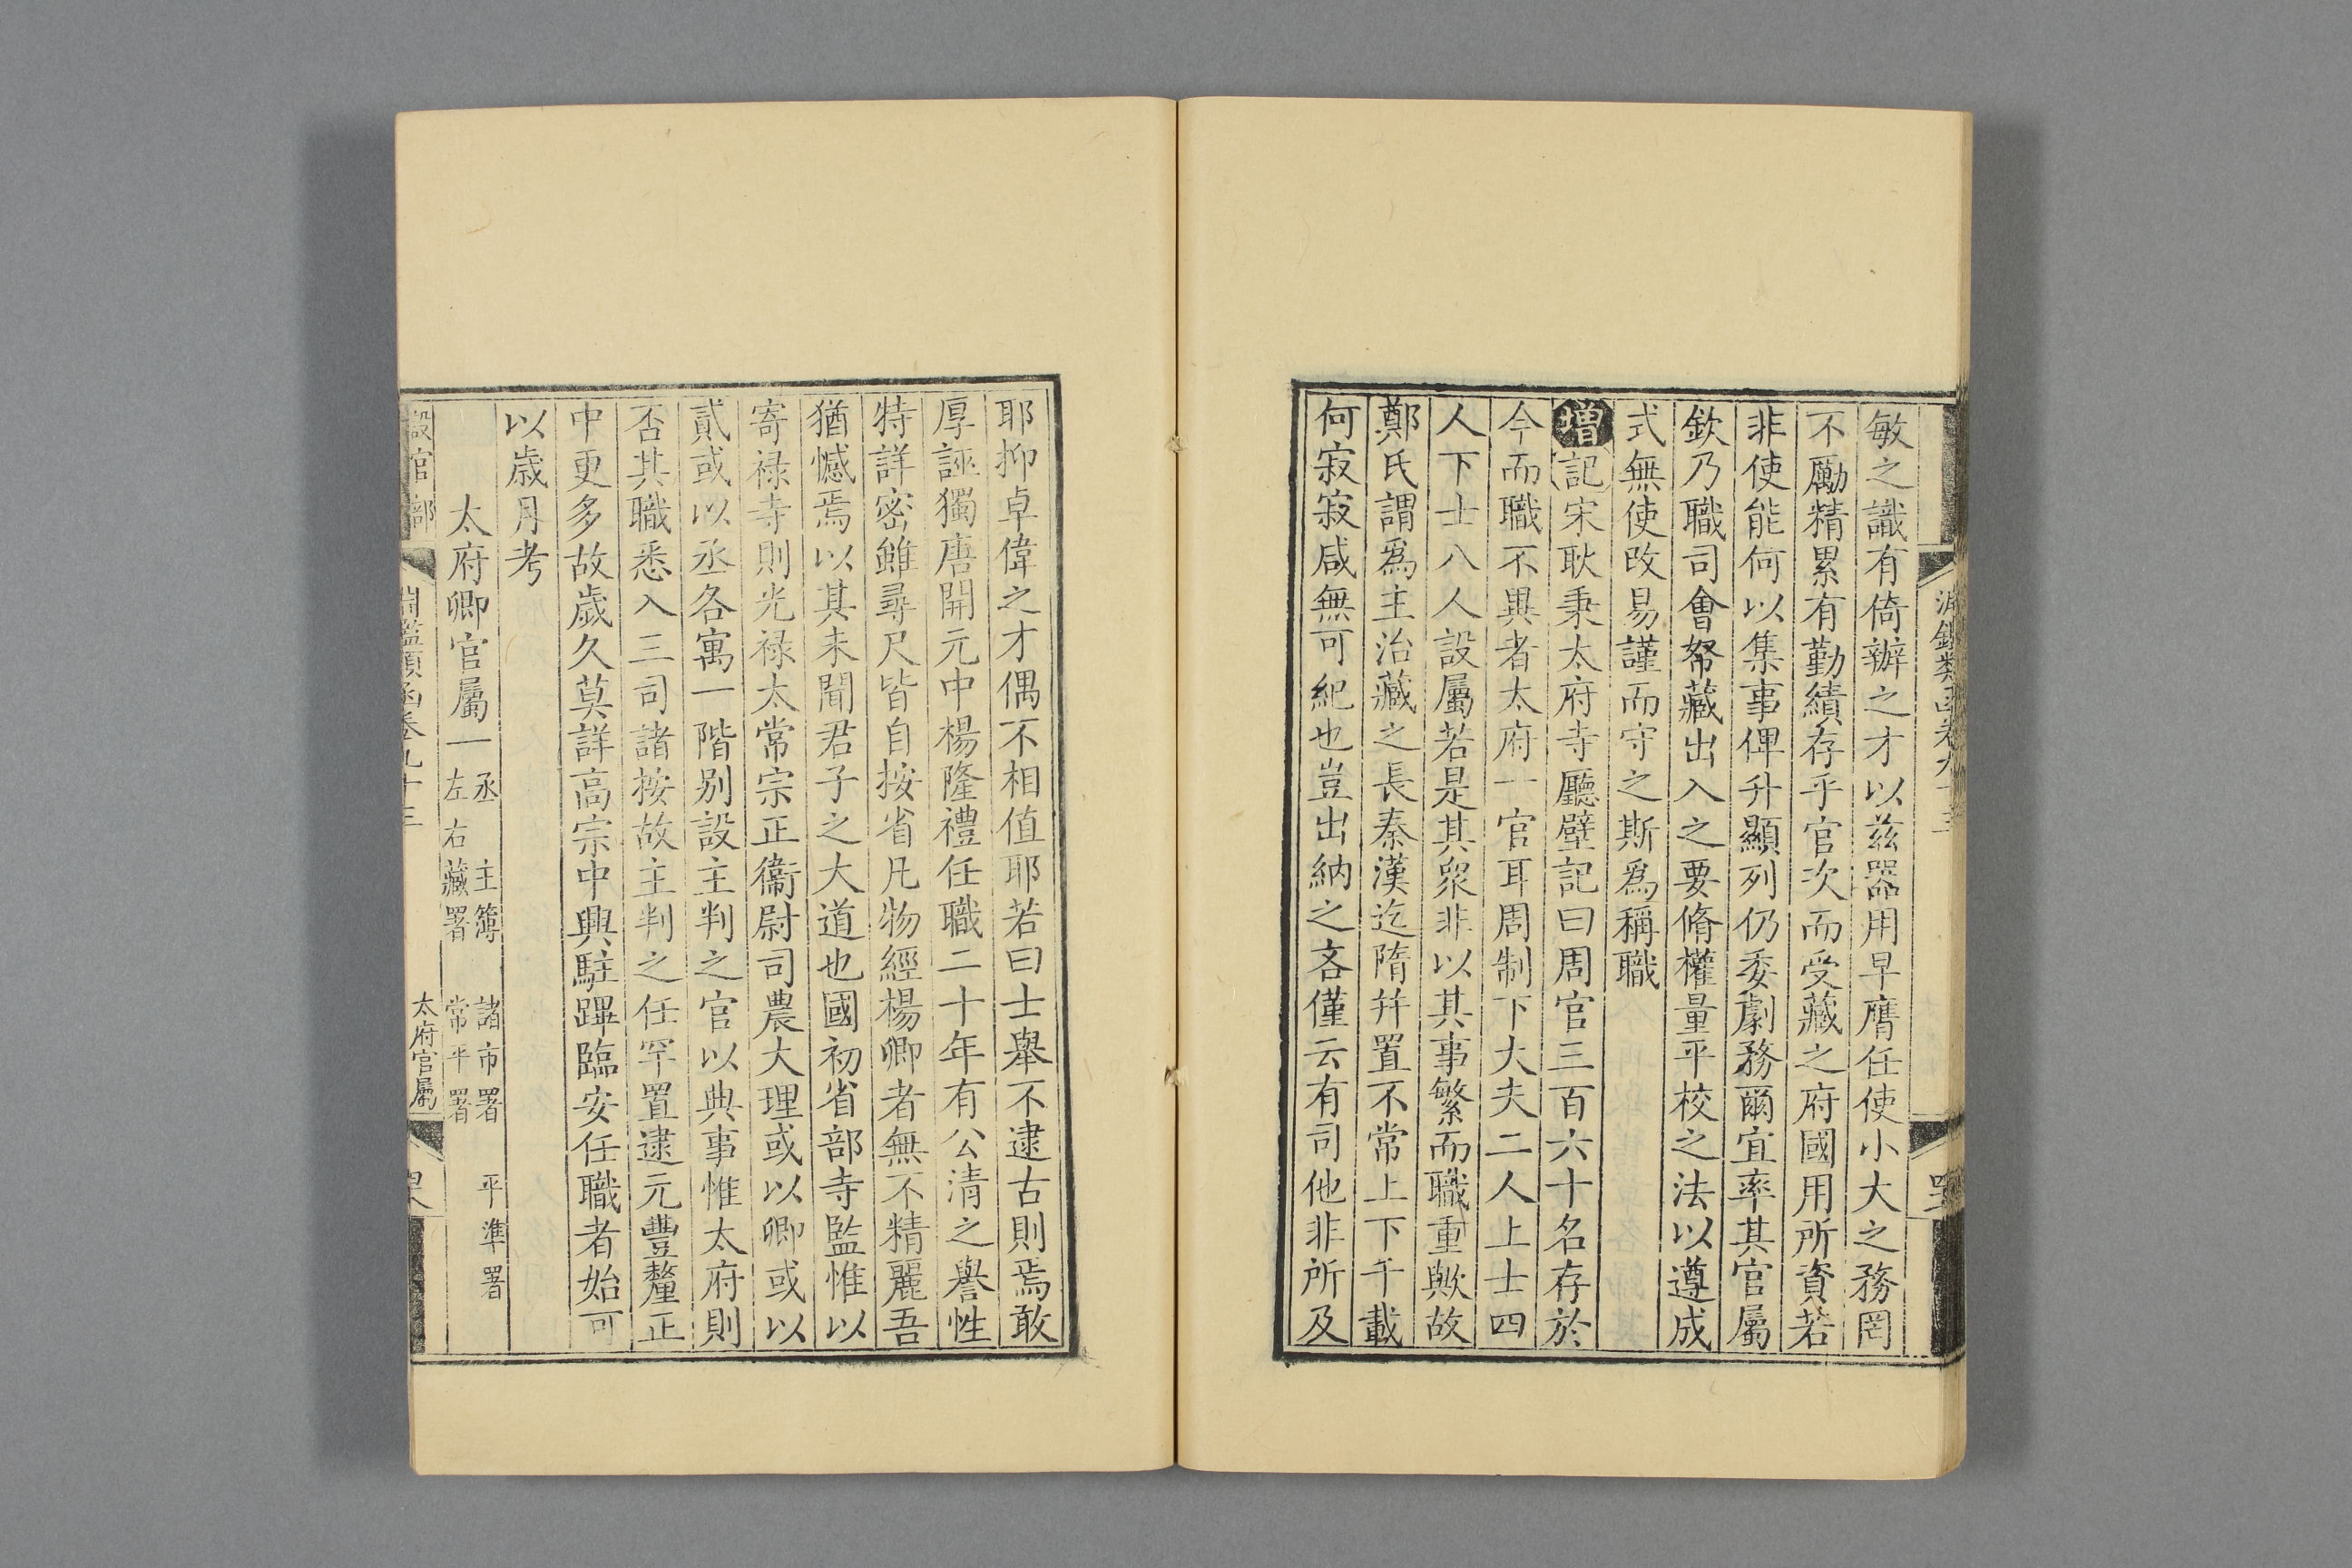 敏之識有倚辦之才以兹器用早膺任使小大之務罔
不勵精累有勤績存乎官次而受藏之府國用所資若
非使能何以集事俾升顯列仍委劇務爾宜率其官屬
欽乃職司會帑藏出入之要脩權量平校之法以遵成
式無使改易謹而守之斯爲稱職
增記宋耿秉太府寺廳壁記曰周官三百六十名存於
今而職不異者太府一官耳周制下大夫二人上士四
人下士八人設屬若是其衆非以其事繁而職重歟故
鄭氏謂爲主治藏之長秦漢迄隋并置不常上下千載
何寂寂咸無可紀也豈出納之吝僅云有司他非所及
耶抑卓偉之才偶不相值耶若曰士舉不逮古則焉敢
厚誣獨唐開元中楊隆禮任職二十年有公清之譽性
特詳密雖尋尺皆自按省凡物經楊卿者無不精麗吾
猶憾焉以其未聞君子之大道也國初省部寺監惟以
寄禄寺則光禄太常宗正衞尉司農大理或以卿或以
貳或以丞各寓一階别設主判之官以典事惟太府則
否其職悉入三司諸按故主判之任罕置逮元豐釐正
中更多故歲久莫詳高宗中興駐蹕臨安任職者始可
以歳月考
太府卿官屬一 丞 主簿 諸市署 平準署
左右藏署 常平署
設官部 淵鑑類函卷九十三 太府官屬